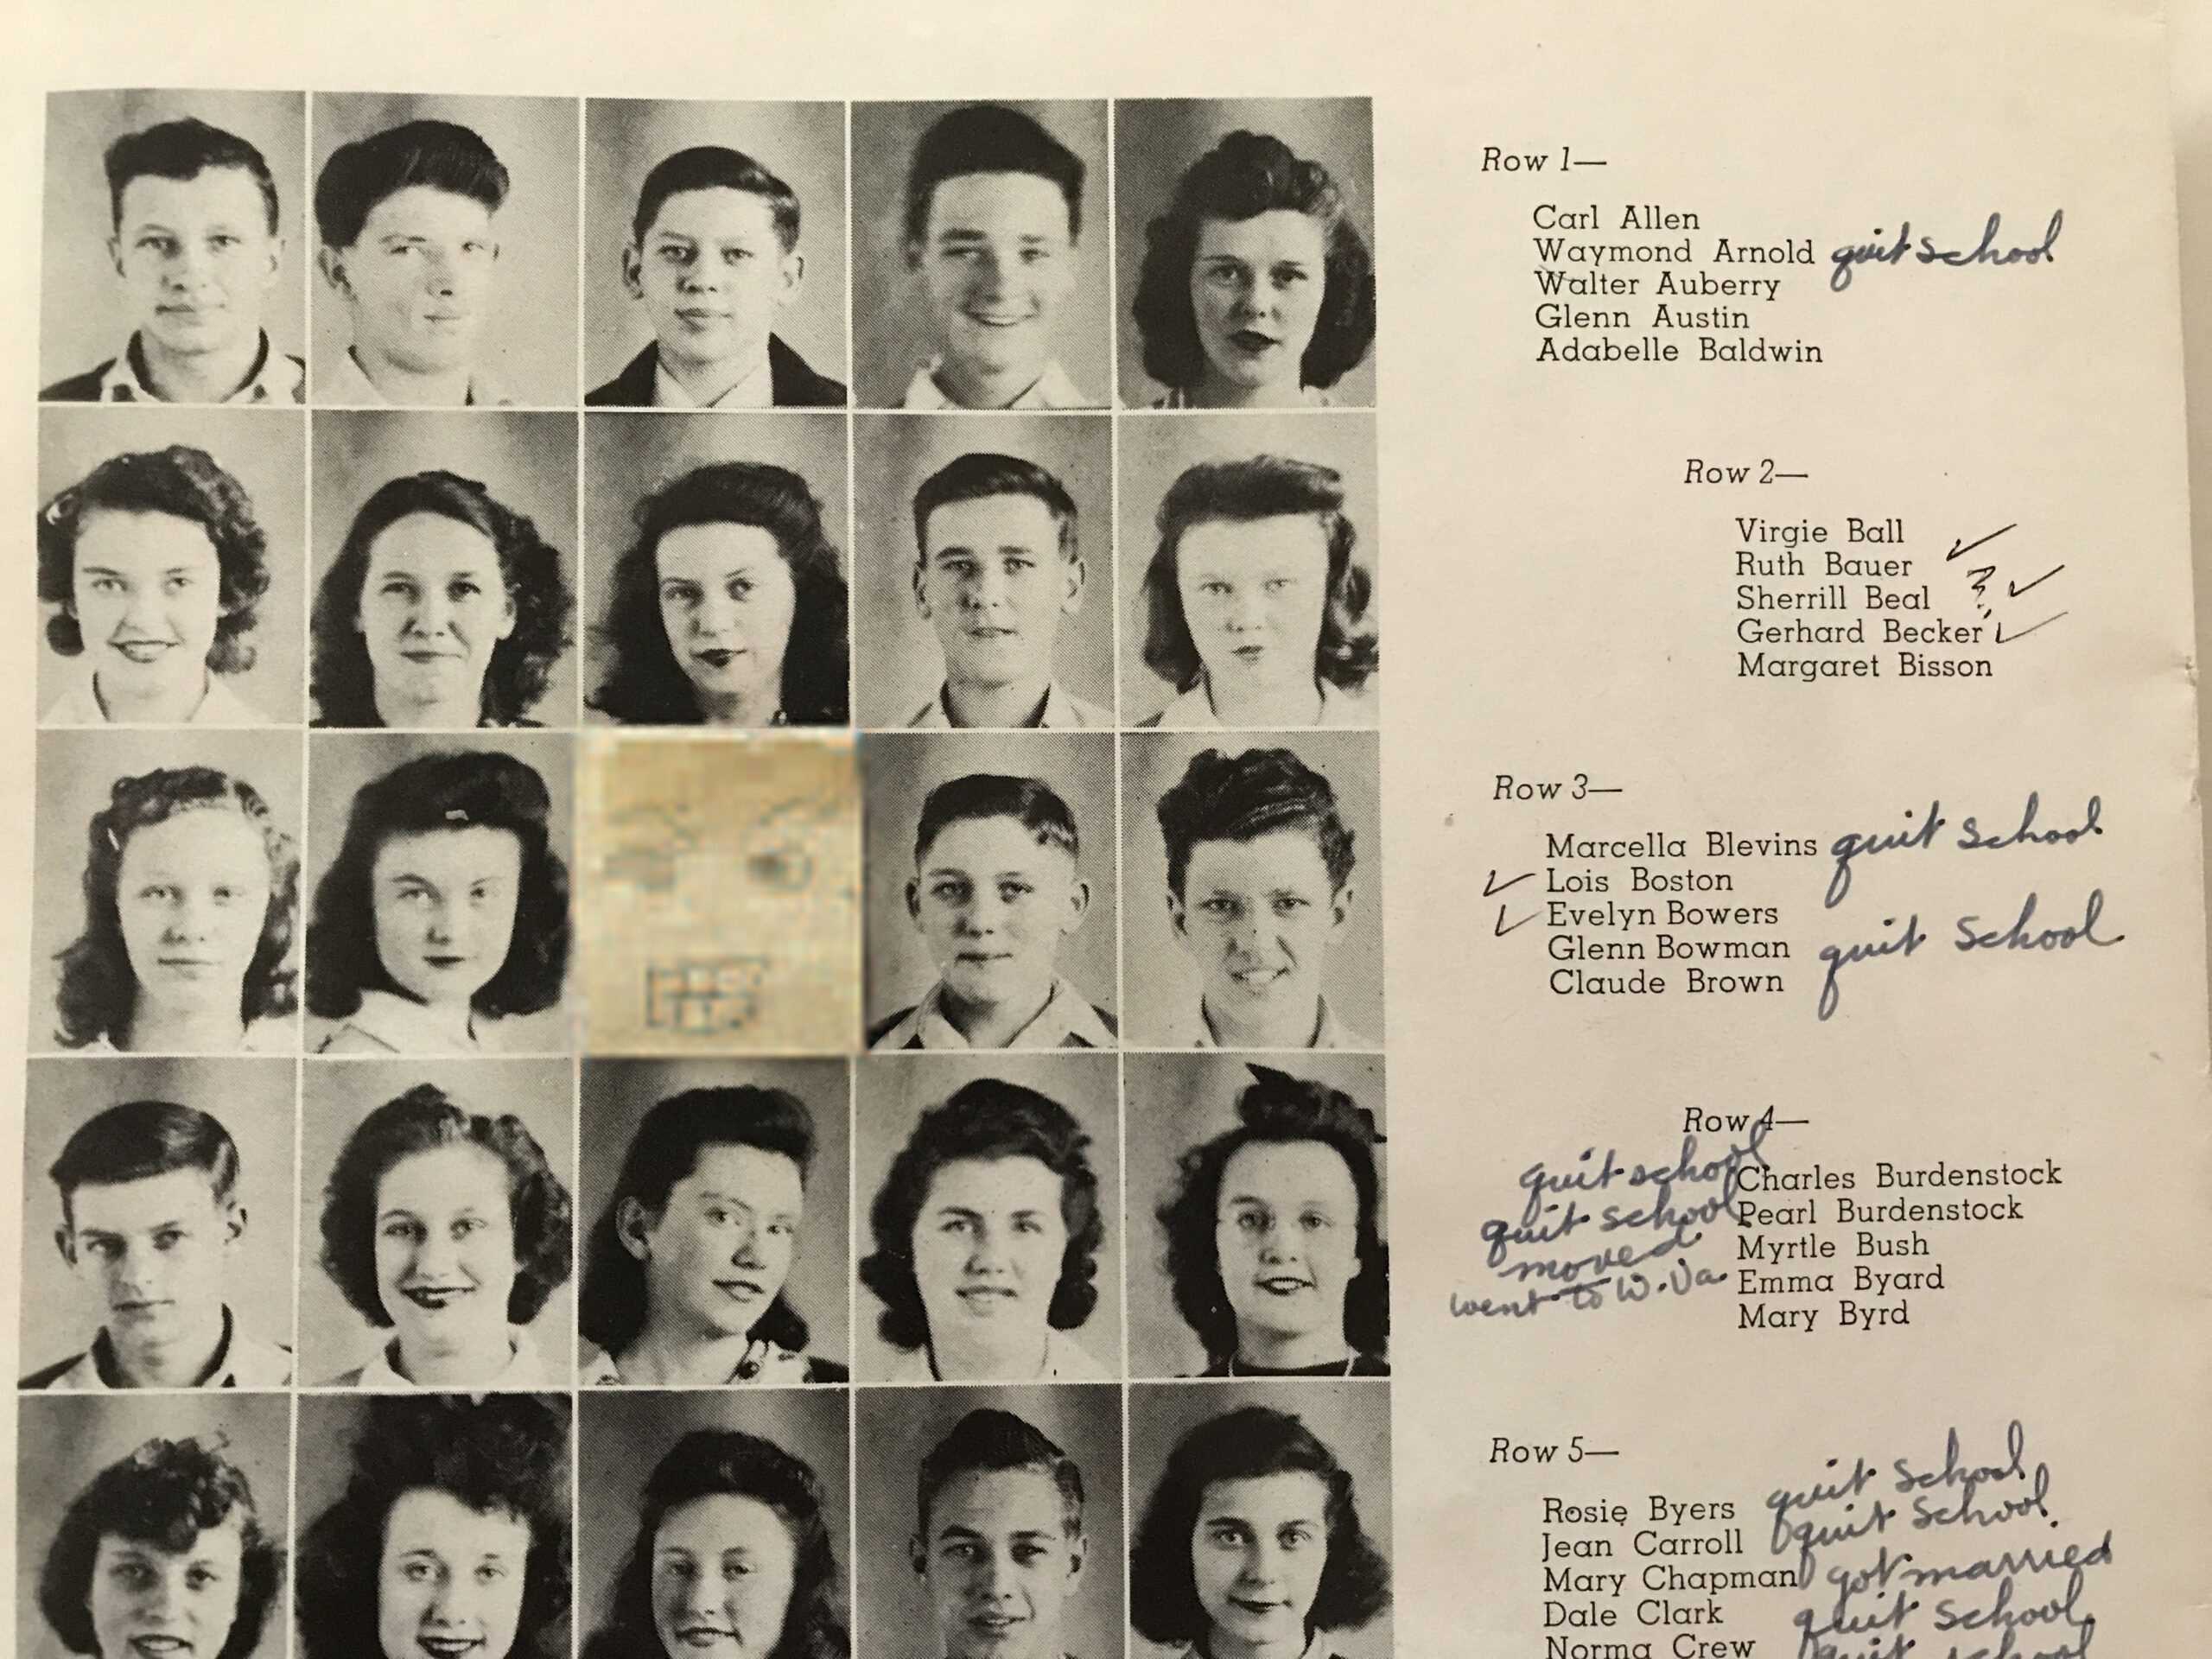 Row 1—
Carl Allen
Waymond Arnold quit school
Walter Auberry
Glenn Austin
Adabelle Baldwin
Row 2—
Virgie Ball
Ruth Bauer ✓
Sherrill Beal ? ✓
Gerhard Becker ✓
Margaret Bisson
Row 3—
Marcella Blevins quit school
✓ Lois Boston
✓ Evelyn Bowers
Glenn Bowman quit school
Claude Brown
Row 4—
quit school Charles Burdenstock
quit school Pearl Burdenstock
moved Myrtle Bush
went to W. Va. Emma Byard
Mary Byrd
Row 5—
Rosie Byers quit school
Jean Carroll quit school
Mary Chapman got married
Dale Clark quit school
Norma Crew quit school